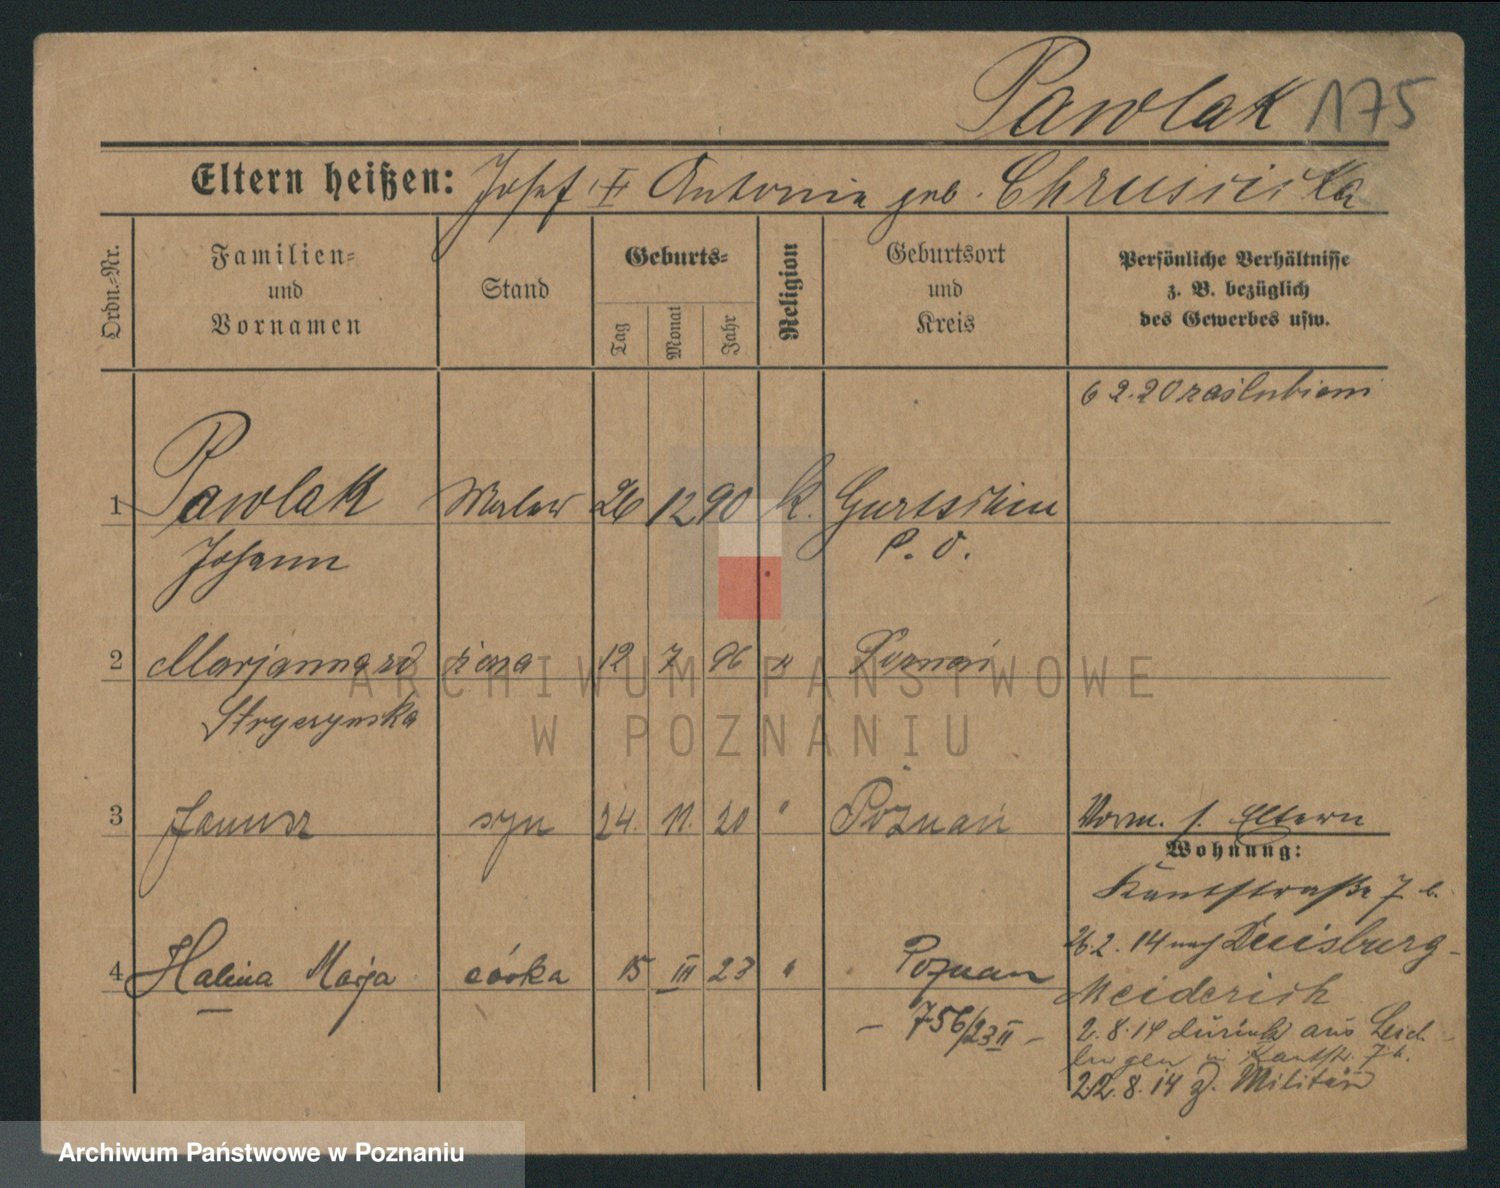 Pawlak 175
Eltern heißen: Josef I Antonia geb.
Ordn.-Nr.
Familien-
und
Vornamen
Stand
Geburts-
Tag
Monat
Jahr
Religion
Geburtsort
und
Kreis
Persönliche Verhältnisse
z. B. bezüglich
des Gewerbes usw.
6 2.20 zaślubieni
1 Pawlak 26 12 90 k.
Johann P. O.
2 Marjanna zd żona 12 7 96 " Poznań
3 Janusz syn 24. 11. 20 " Poznań Vorm. s. Eltern
Wohnung:
Kantstraße 7 b.
4 Halina Marja córka 15 III 23 " Poznań
26.2.14 nach Duisburg-
Meiderich
– 756/23 II –
2.8.14 zurück aus Leich
lingen n Kantstr. 7 b.
22.8.14 z. Militär
ARCHIWUM PAŃSTWOWE
W POZNANIU
Archiwum Państwowe w Poznaniu